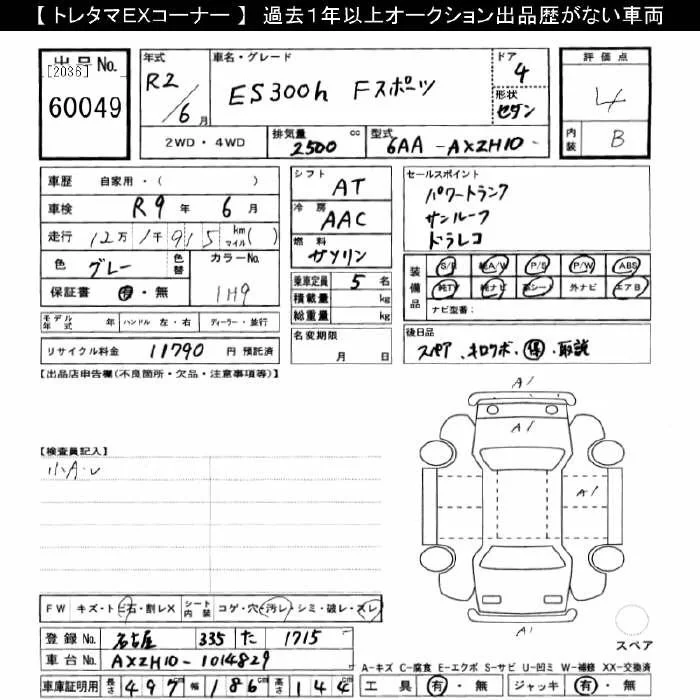 【トレタマEXコーナー】 過去1年以上オークション出品歴がない車両
出品No. [2036] 60049
年式 R2/6月
車名・グレード ES300h Fスポーツ
ドア 4
形状 セダン
評価点 4
内装 B
2WD・4WD 排気量 2500 cc 型式 6AA-AXZH10-
車歴 自家用・( )
車検 R9年 6月
走行 12万1千915 km マイル( )
色 グレー 色替 カラーNo. 1H9
保証書 有・無
シフト AT
冷房 AAC
燃料 ガソリン
乗車定員 5名
積載量 kg
総重量 kg
セールスポイント
パワートランク
サンルーフ
ドラレコ
装備品 S/R 純A/W P/S P/W ABS
純TV 純ナビ 革シート 外ナビ エアB
ナビ型番:
モデル年式 年 ハンドル 左・右 ディーラー・並行
リサイクル料金 11790 円 預託済
名変期限 月 日
後日品
スペア、キロクボ、保・取説
【出品店申告欄(不良箇所・欠品・注意事項等)】
【検査員記入】
小A・レ
A1
A1
A1
A1
FW キズ・トビ石・割レX シート内装 コゲ・穴・汚レ・シミ・破レ・スレ
スペア
登録No. 名古屋 335 た 1715
車台No. AXZH10-1014829
A-キズ C-腐食 E-エクボ S-サビ U-凹ミ W-補修 XX-交換済
車庫証明用 長さ 497 幅 186cm 高さ 144cm 工具 有・無 ジャッキ 有・無